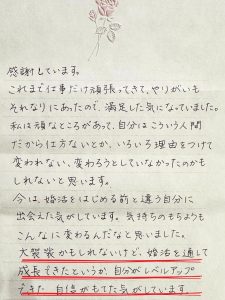 感謝しています。
これまで仕事だけ頑張ってきて、やりがいも
それなりにあったので、満足した気になっていました。
私は頑なところがあって、自分はこういう人間
だから仕方ないとか、いろいろ理由をつけて
変われない、変わろうとしていなかったのかも
しれないと思います。
今は、婚活をはじめる前と違う自分に
出会えた気がしています。気持ちのもちようも
こんなに変わるんだなと思いました。
大袈裟かもしれないけど、婚活を通して
成長できたというか、自分がレベルアップ
できた、自信がもてた気がしています。